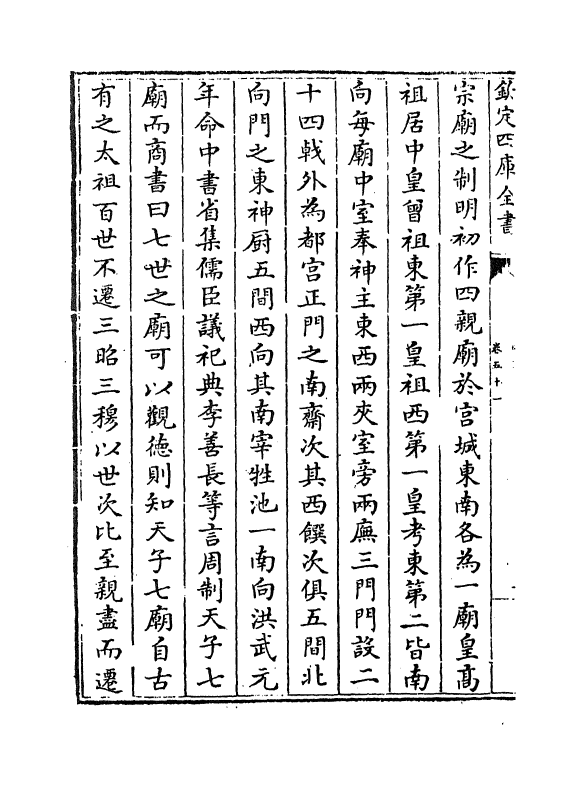 欽定四庫全書
卷五十一
宗廟之制明初作四親廟於宫城東南各為一廟皇髙
祖居中皇曾祖東第一皇祖西第一皇考東第二皆南
向每廟中室奉神主東西兩夾室旁兩廡三門門設二
十四㦸外為都宫正門之南齋次其西饌次俱五間北
向門之東神厨五間西向其南宰牲池一南向洪武元
年命中書省集儒臣議祀典李善長等言周制天子七
廟而商書曰七世之廟可以觀徳則知天子七廟自古
有之太祖百世不遷三昭三穆以世次比至親盡而遷